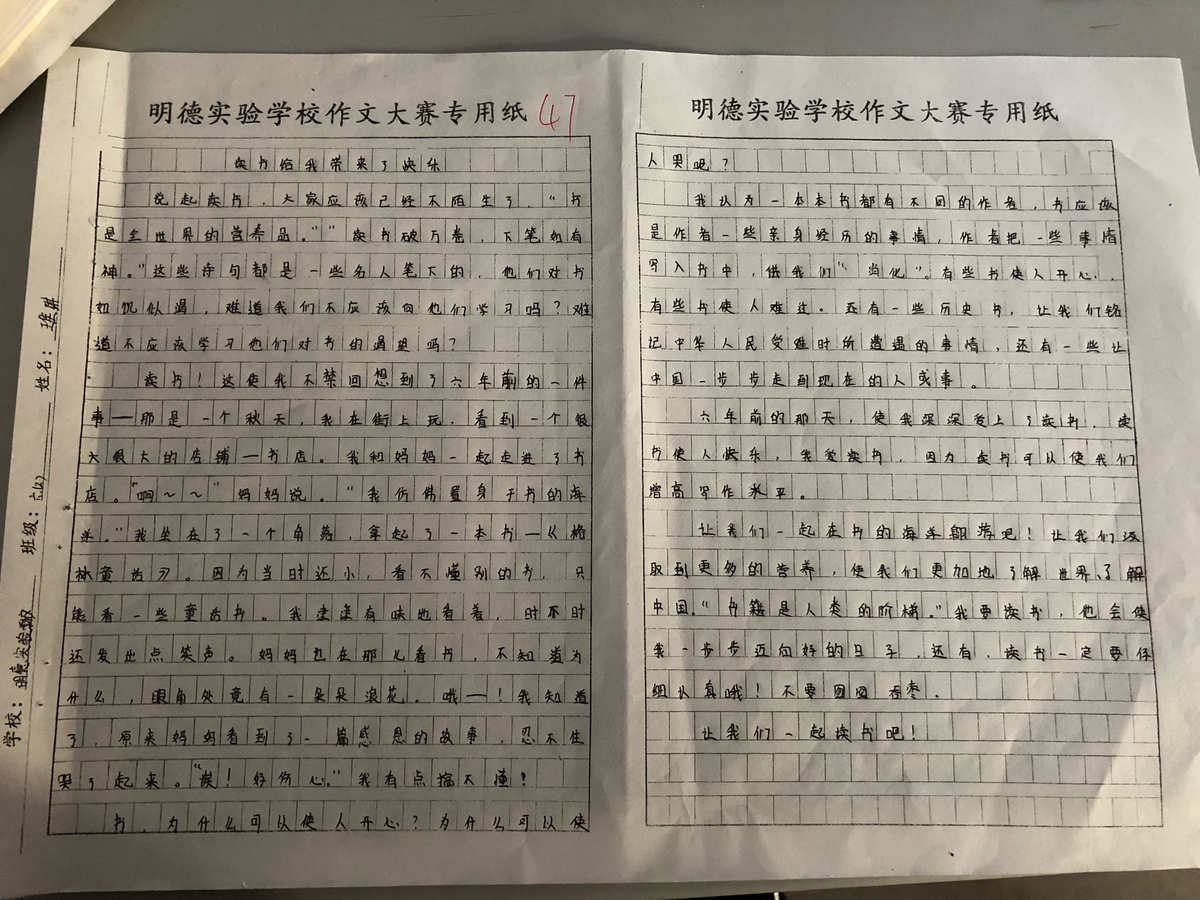 明德实验学校作文大赛专用纸 47
读书给我带来了快乐
说起读书，大家应该已经不陌生了，“书
是全世界的营养品。”“读书破万卷，下笔如有
神。”这些诗句都是一些名人笔下的，他们对书
如饥似渴，难道我们不应该向他们学习吗？难
道不应该学习他们对书的渴望吗？
读书！这使我不禁回想到了六年前的一件
事——那是一个秋天，我在街上玩，看到一个很
大很大的店铺—书店。我和妈妈一起走进了书
店。“啊～～”妈妈说。“我仿佛置身于书的海
洋。”我坐在了一个角落，拿起了一本书—《格
林童话》。因为当时还小，看不懂别的书，只
能看一些童话书。我津津有味地看着，时不时
还发出点笑声。妈妈也在那儿看书，不知道为
什么，眼角处竟有一朵朵浪花。哦——！我知道
了，原来妈妈看到了一篇感恩的故事，忍不住
哭了起来。“唉！好伤心。”我有点搞不懂？
书，为什么可以使人开心？为什么可以使
学校：明德实验学校 班级：六(2) 姓名：
明德实验学校作文大赛专用纸
人哭呢？
我认为一本本书都有不同的作者，书应该
是作者一些亲身经历的事情，作者把一些事情
写入书中，供我们“当化”。有些书使人开心，
有些书使人难过。还有一些历史书，让我们铭
记中华人民受难时所遭遇的事情，还有一些让
中国一步步走到现在的人或事。
六年前的那天，使我深深爱上了读书，读
书使人快乐，我爱读书，因为读书可以使我们
增高写作水平。
让我们一起在书的海洋翱荡吧！让我们汲
取到更多的营养，使我们更加地了解世界、了解
中国。“书籍是人类的阶梯。”我要读书，也会使
我一步步迈向好的日子，还有，读书一定要仔
细认真哦！不要囫囵吞枣。
让我们一起读书吧！